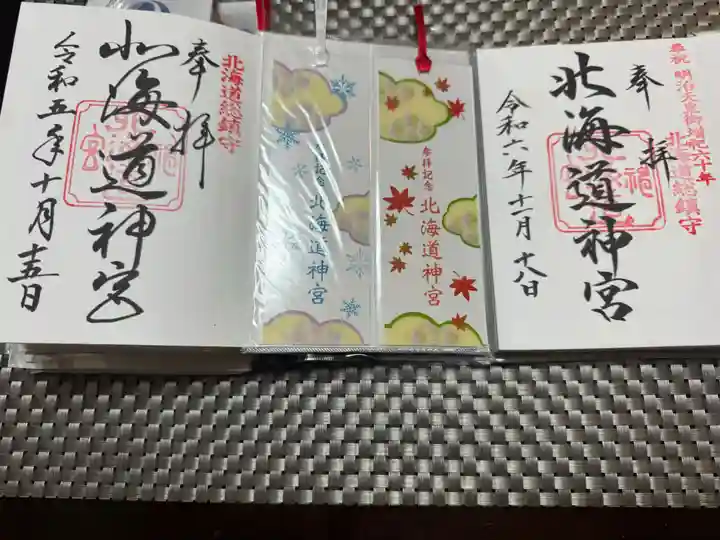 北海道総鎮守
奉拝
北海道神宮
令和五年十月十五日
参拝記念
北海道神宮
参拝記念
北海道神宮
奉祝 明治天皇御増祀六十年
北海道総鎮守
奉拝
北海道神宮
令和六年十一月十八日